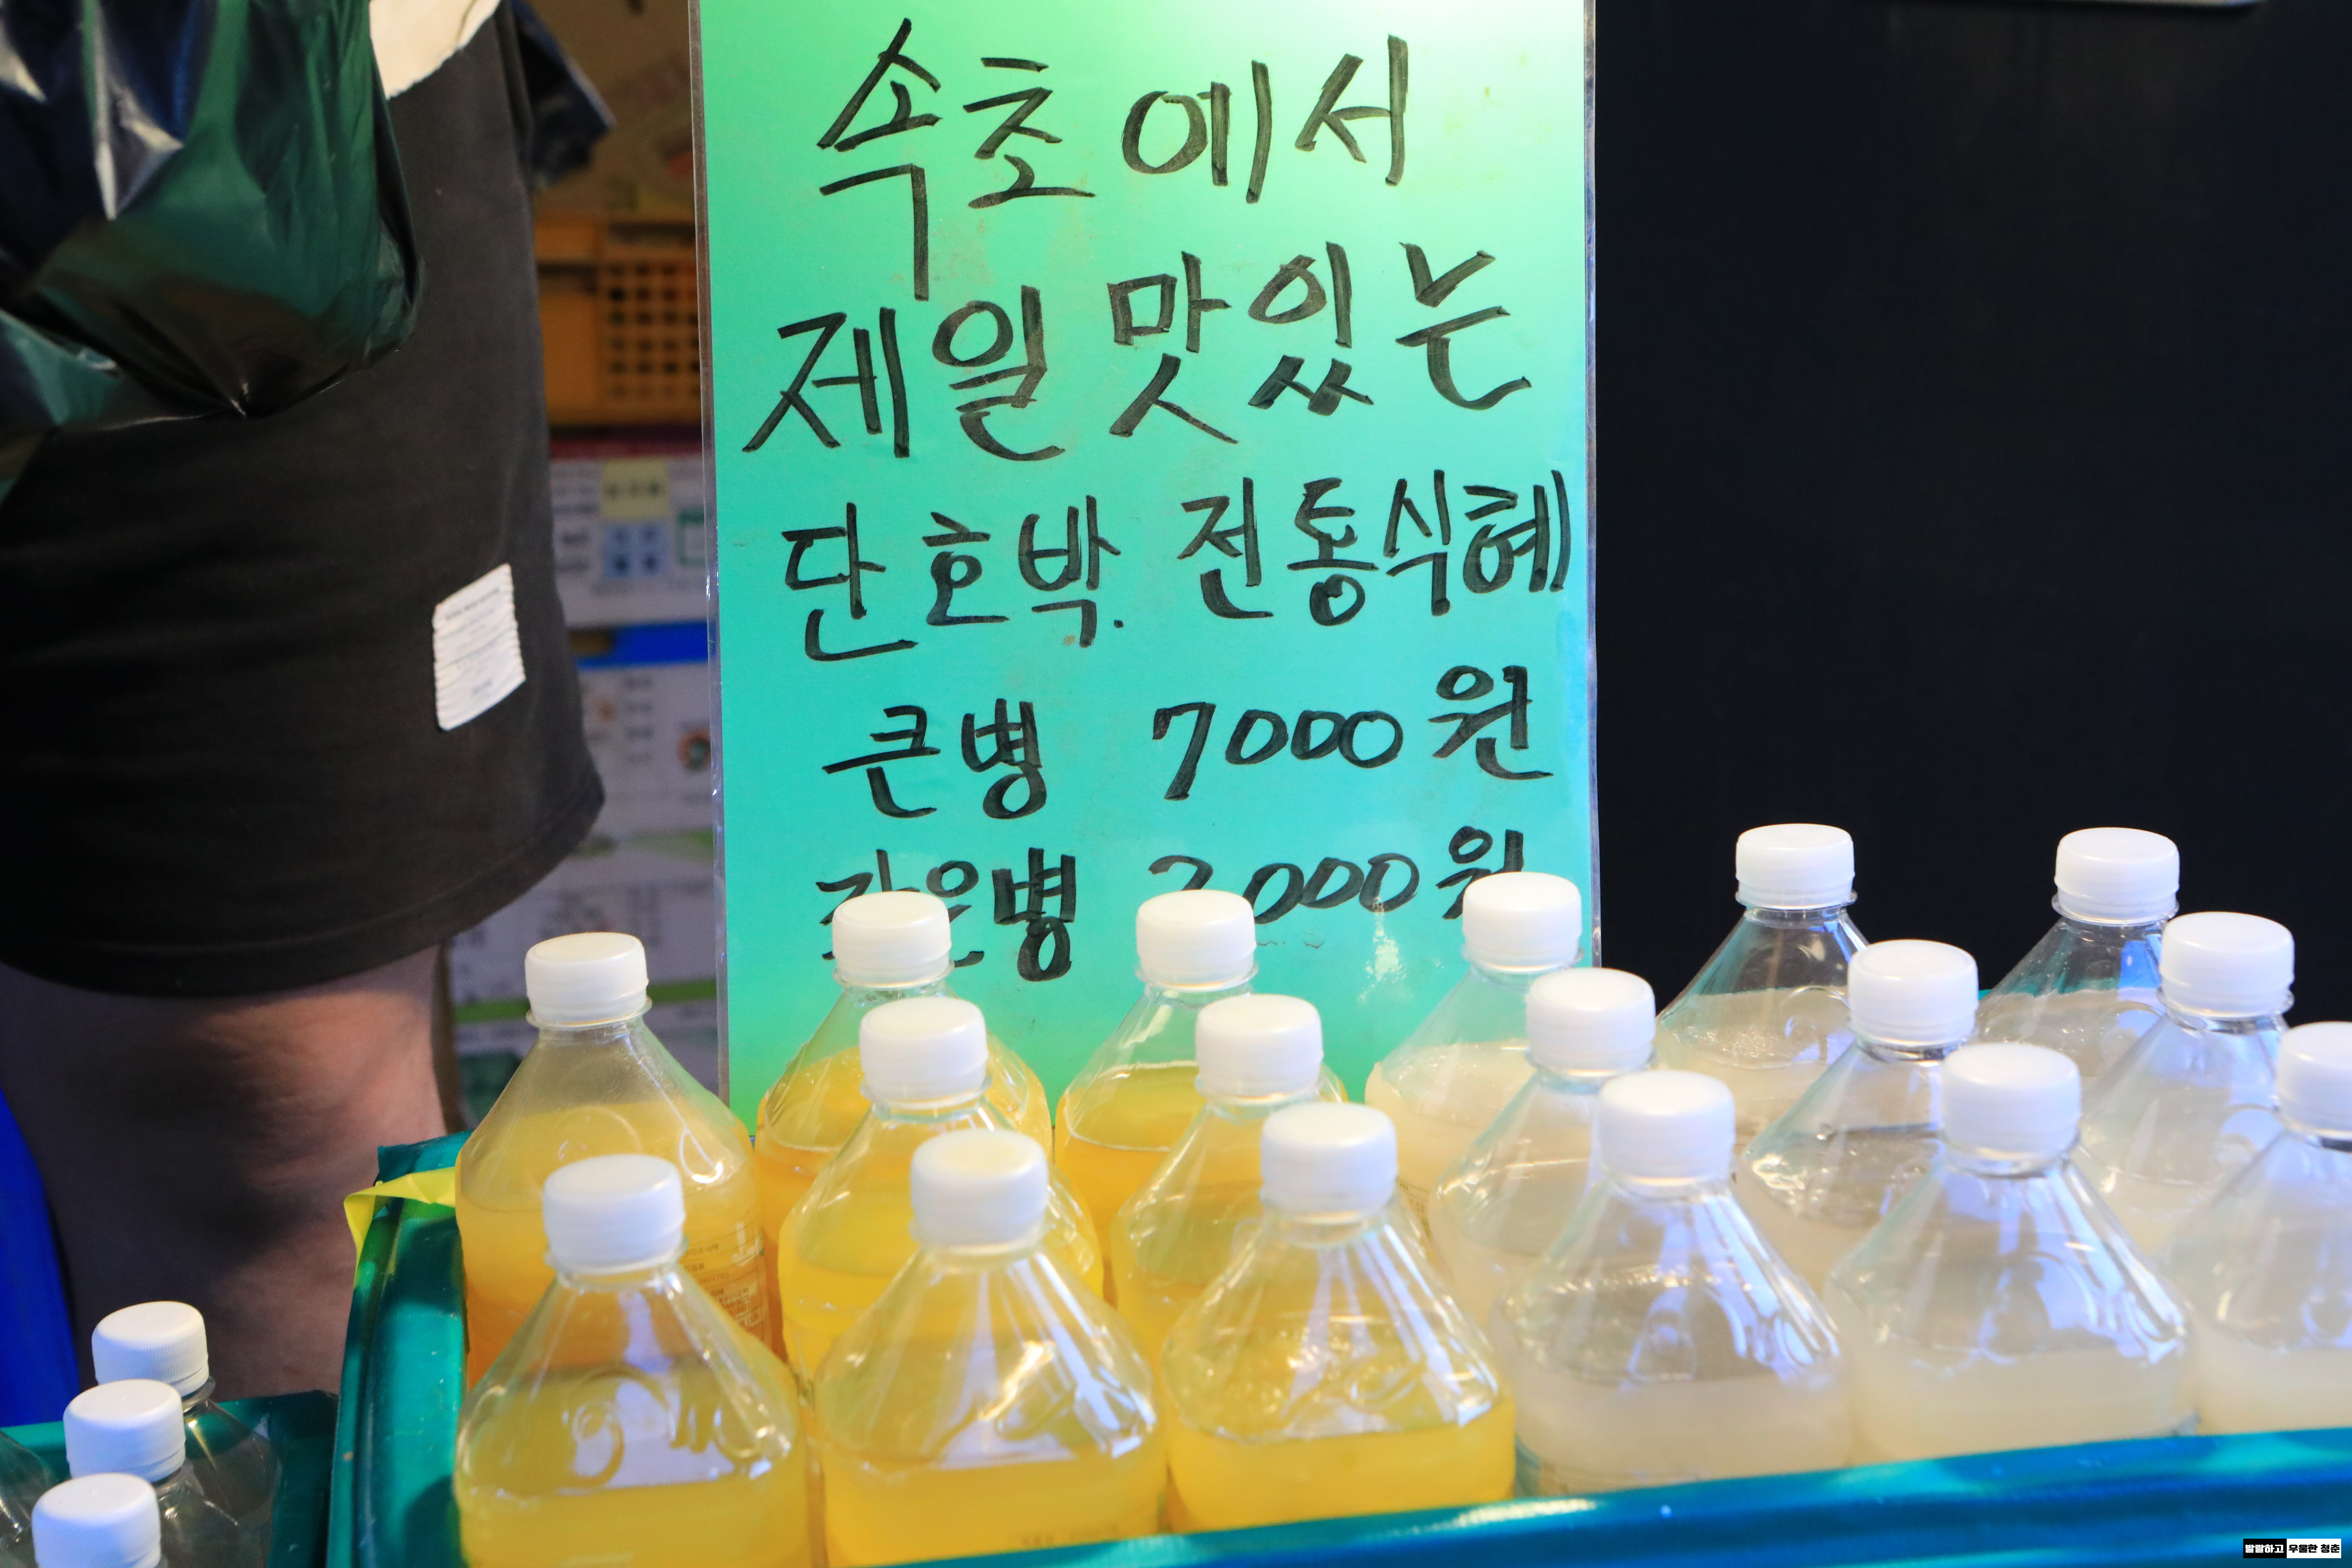 속초에서
제일 맛있는
단호박. 전통식혜
큰병 7000원
작은병 000원
발랄하고 우울한 청춘